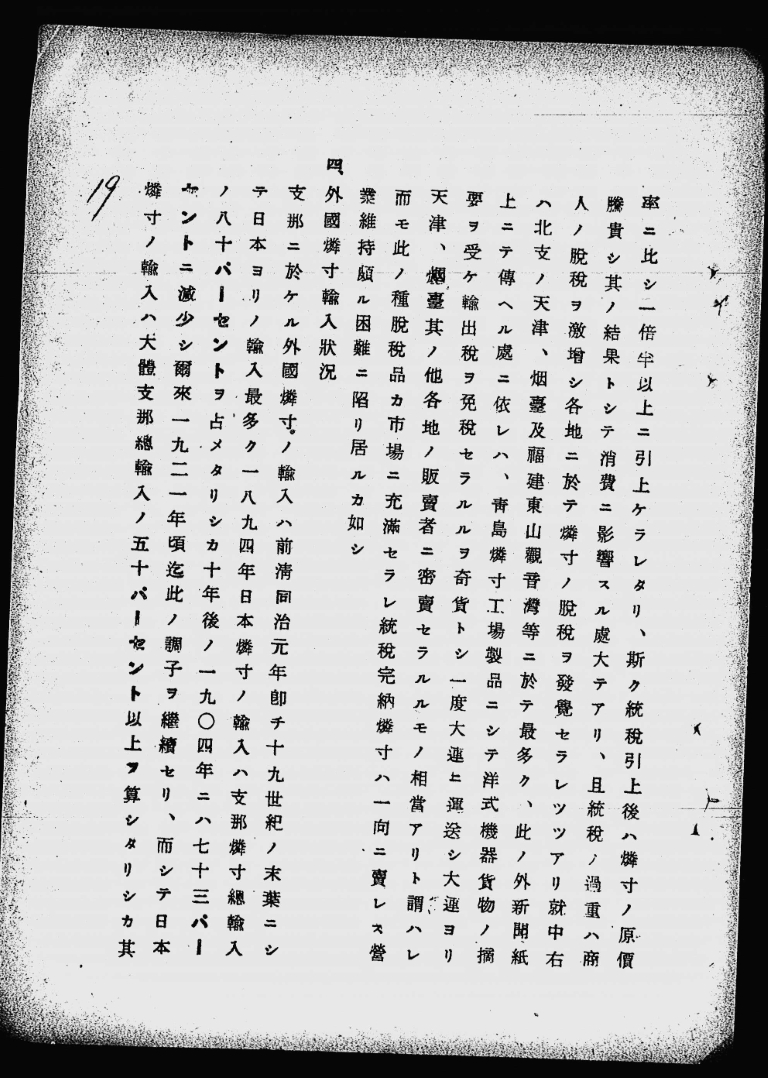 率ニ比シ一倍半以上ニ引上ケラレタリ、斯ク統稅引上後ハ燐寸ノ原價
騰貴シ其ノ結果トシテ消費ニ影響スル處大テアリ、且統稅ノ過重ハ商
人ノ脫稅ヲ激增シ各地ニ於テ燐寸ノ脫稅ヲ發覺セラレツツアリ就中右
ハ北支ノ天津、烟臺及福建東山觀音灣等ニ於テ最多ク、此ノ外新聞紙
上ニテ傳ヘル處ニ依レハ、靑島燐寸工場製品ニシテ洋式機器貨物ノ摘
要ヲ受ケ輸出稅ヲ免稅セラルルヲ奇貨トシ一度大連ニ運送シ大連ヨリ
天津、烟臺其ノ他各地ノ販賣者ニ密賣セラルルモノ相當アリト謂ハレ
而モ此ノ種脫稅品カ市場ニ充滿セラレ統稅完納燐寸ハ一向ニ賣レス營
業維持頗ル困難ニ陷リ居ルカ如シ
四、外國燐寸輸入狀況
支那ニ於ケル外國燐寸ノ輸入ハ前淸同治元年卽チ十九世紀ノ末葉ニシ
テ日本ヨリノ輸入最多ク一八九四年日本燐寸ノ輸入ハ支那燐寸總輸入
ノ八十パーセントヲ占メタリシカ十年後ノ一九〇四年ニハ七十三パー
セントニ減少シ爾來一九二一年頃迄此ノ調子ヲ繼續セリ、而シテ日本
燐寸ノ輸入ハ大體支那總輸入ノ五十パーセント以上ヲ算シタリシカ其
19